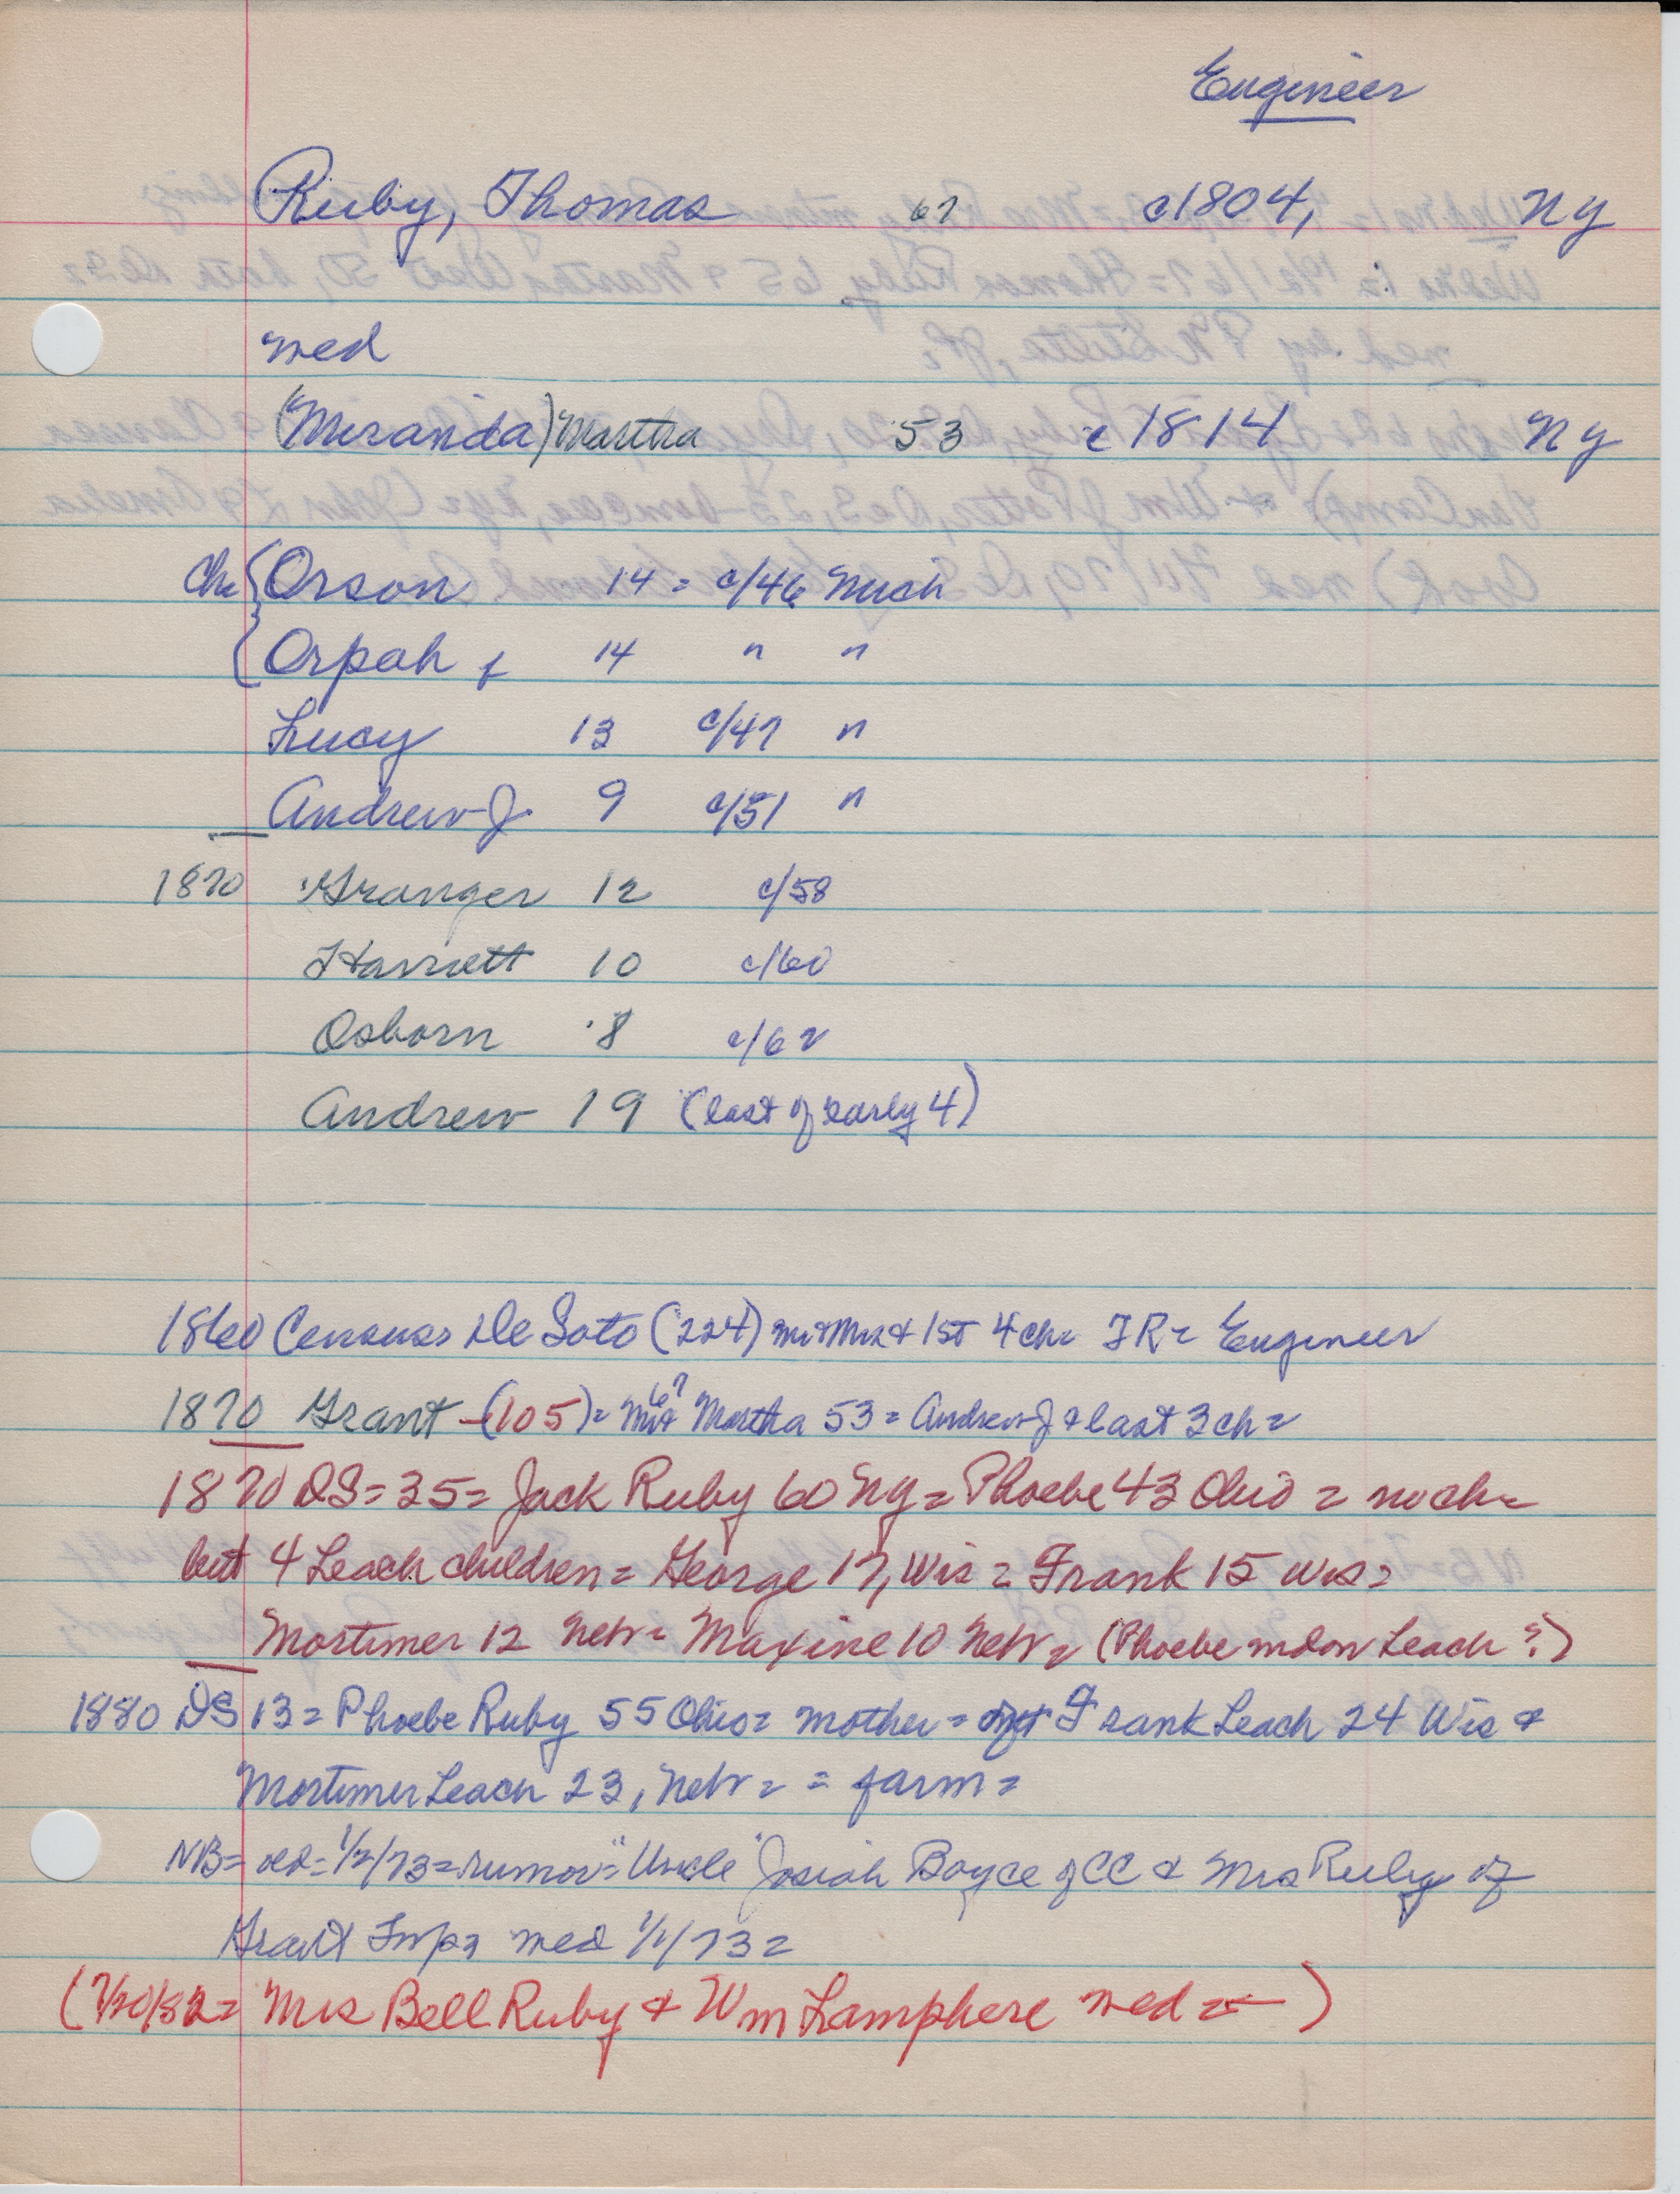 Engineer
Ruby, Thomas 67 c1804, NY
med
(Miranda) Martha 53 c1814 NY
Ch { Orson 14 = c/46 Mich
Orpah f 14 " "
Lucy 13 c/47 "
Andrew J 9 c/51 "
1870 Granger 12 c/58
Harriett 10 c/60
Osborn 8 c/62
Andrew 19 (last of early 4)
1860 Census De Soto (224) Mr & Mrs & 1st 4 ch= TR= Engineer
1870 Grant - (105) = Mr 67 & Martha 53 = Andrew J & last 3 ch=
1870 DS = 35 = Jack Ruby 60 NY = Phoebe 43 Ohio = no ch=
but 4 Leach children = George 17, Wis = Frank 15 Wis =
Mortimer 12 Neb = Maxine 10 Neb = (Phoebe mdow Leach ?)
1880 DS 13 = Phoebe Ruby 55 Ohio = mother = of Frank Leach 24 Wis &
Mortimer Leach 23, Neb = = farm =
NB = 1/2/73 = rumor = "Uncle" Josiah Boyce of CC & Mrs Ruby of
Grant Twp= med 1/1/73 =
(7/20/82 = Mrs Bell Ruby & Wm Lamphere med = )